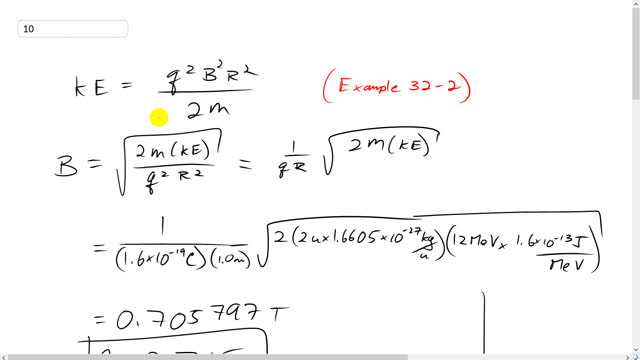 10
KE = q² B² R² / 2m
(Example 32-2)
B = √(2m(KE) / q² R²) = 1/qR √(2m(KE))
= 1 / (1.6×10⁻¹⁹C)(1.0m) √(2(2u×1.6605×10⁻²⁷ kg/u)(12MeV × 1.6×10⁻¹³J/MeV))
= 0.705797 T